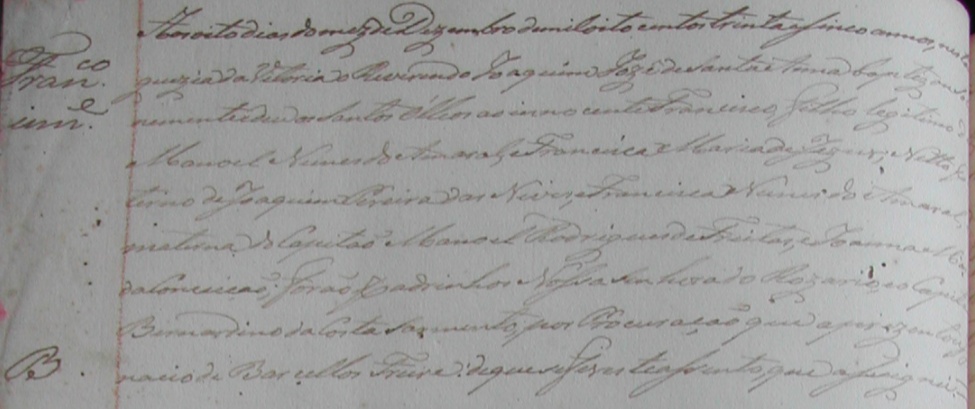 Aos oito dias do mez de Dezembro de mil oito centos trinta e sinco annos, nesta
Fran.co
guezia da Vitoria o Reverendo Joaquim Jozé de Santa Anna baptizou so
inn.e
nemente e deu os Santos Óleos ao innocente Francisco, Filho legitimo d
Manoel Nunes do Amaral, e Francisca Maria de Jezus; Netto Pa
terno de Joaquim Pereira das Neves, e Francisca Nunes do Amaral,
materna do Capitaõ Manoel Rodrigues de Freitas, e Joanna M.a
da Conceiçaõ; Foraõ Padrinhos Nossa Senhora do Rozario, e o Capit
Bernardino da Costa Sarmento, por Procuraçaõ que aprezentou
B.
nacio de Barcellos Freire: de que se fez este assento, que assignei